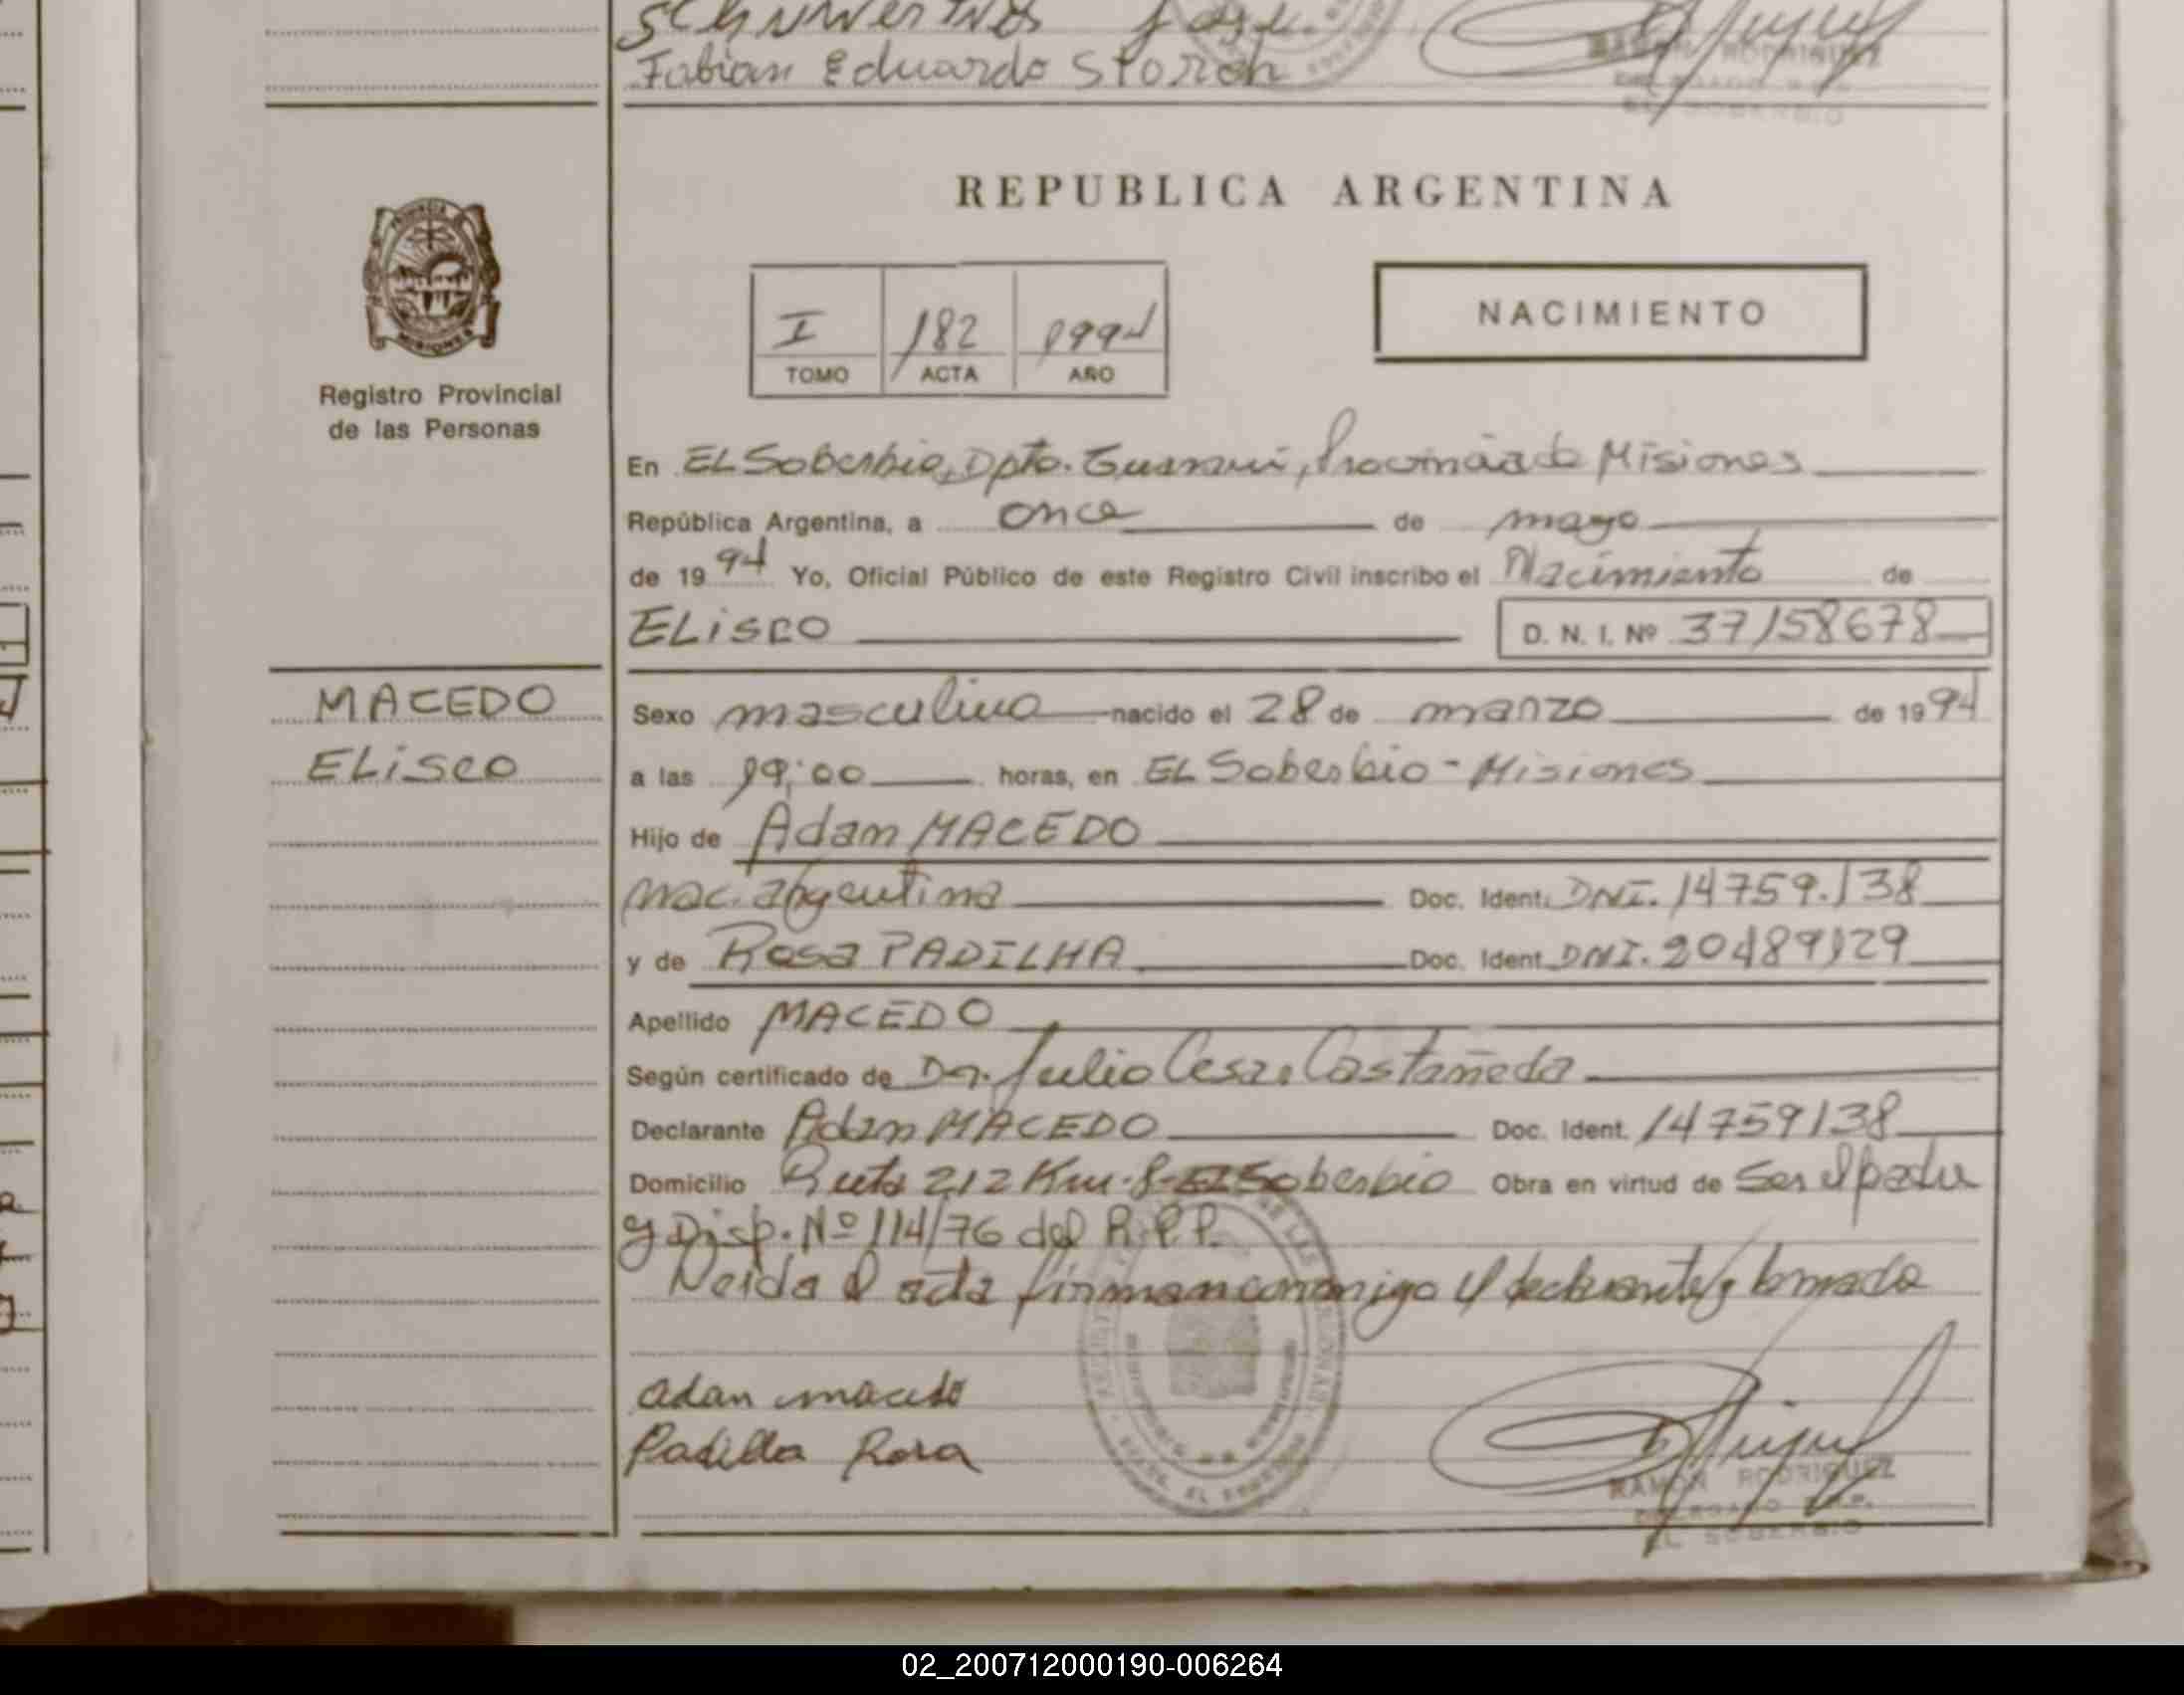 Fabian Eduardo Storch
RAMON RODRIGUEZ
EL SOBERBIO
PROVINCIA DE
MISIONES
Registro Provincial
de las Personas
REPUBLICA ARGENTINA
I 182 1994
TOMO ACTA AÑO
NACIMIENTO
En EL Soberbio, Dpto. Guarani, Provincia de Misiones
República Argentina, a once de mayo
de 1994 Yo, Oficial Público de este Registro Civil inscribo el Nacimiento de
ELiseo D. N. I. Nº 37158678
MACEDO
ELiseo
Sexo masculino nacido el 28 de marzo de 1994
a las 19:00 horas, en EL Soberbio - Misiones
Hijo de Adam MACEDO
nac. argentina Doc. Ident. DNI. 14759.138
y de Rosa PADILHA Doc. Ident. DNI. 20489129
Apellido MACEDO
Según certificado de Dr. Julio Cesar Castañeda
Declarante Adan MACEDO Doc. Ident. 14759138
Domicilio Ruta 212 Km. 8 - El Soberbio Obra en virtud de Ser el padre
y Disp. Nº 114/76 del R.P.P.
Leida el acta firman conmigo el declarante y la madre
adan macedo
Padilla Rosa
RAMON RODRIGUEZ
DELEGADO R.P.P.
EL SOBERBIO
02_200712000190-006264